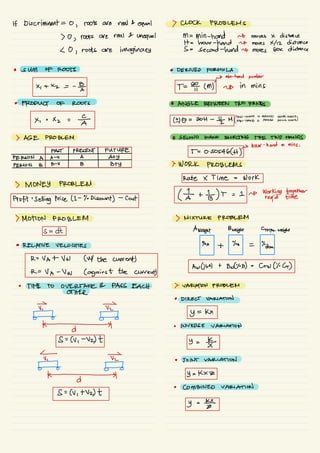 If Discriminant = 0, roots are real & equal
> 0, roots are real & unequal
< 0, roots are imaginary
• SUM OF ROOTS
x₁ + x₂ = - B/A
• PRODUCT OF ROOTS
x₁ · x₂ = C/A
> AGE PROBLEM
PAST PRESENT FUTURE
PERSON A A-x A A+y
PERSON B B-x B B+y
> MONEY PROBLEM
Profit = Selling Price (1 - % Discount) - Cost
> MOTION PROBLEM
S = dt
• RELATIVE VELOCITIES
R = VA + VW (w/ the current)
R = VA - VW (against the current)
• TIME TO OVERTAKE & PASS EACH OTHER
V₁ V₂
d
S = (V₁ - V₂) t
V₁ V₂
d
S = (V₁ + V₂) t
> CLOCK PROBLEMS
M = min-hand → moves x distance
H = hour-hand → moves x/12 distance
S = second-hand → moves 60x distance
• DERIVED FORMULA
T = 60/11 (M) → in mins
• ANGLE BETWEEN TWO HANDS
(±) θ = 30H - 11/2 M
• SECOND HAND BISECTING THE TWO HANDS
> WORK PROBLEMS
Rate x Time = Work
(1/A + 1/B) T = 1 → Working together
req'd time
> MIXTURE PROBLEM
A weight B weight C total weight
%A + %B = %
AW (%A) + BW (%B) = CTW (%CT)
> VARIATION PROBLEM
• DIRECT VARIATION
y = Kx
• INVERSE VARIATION
y = K/x
• JOINT VARIATION
y = Kxz
• COMBINED VARIATION
y = Kx/z